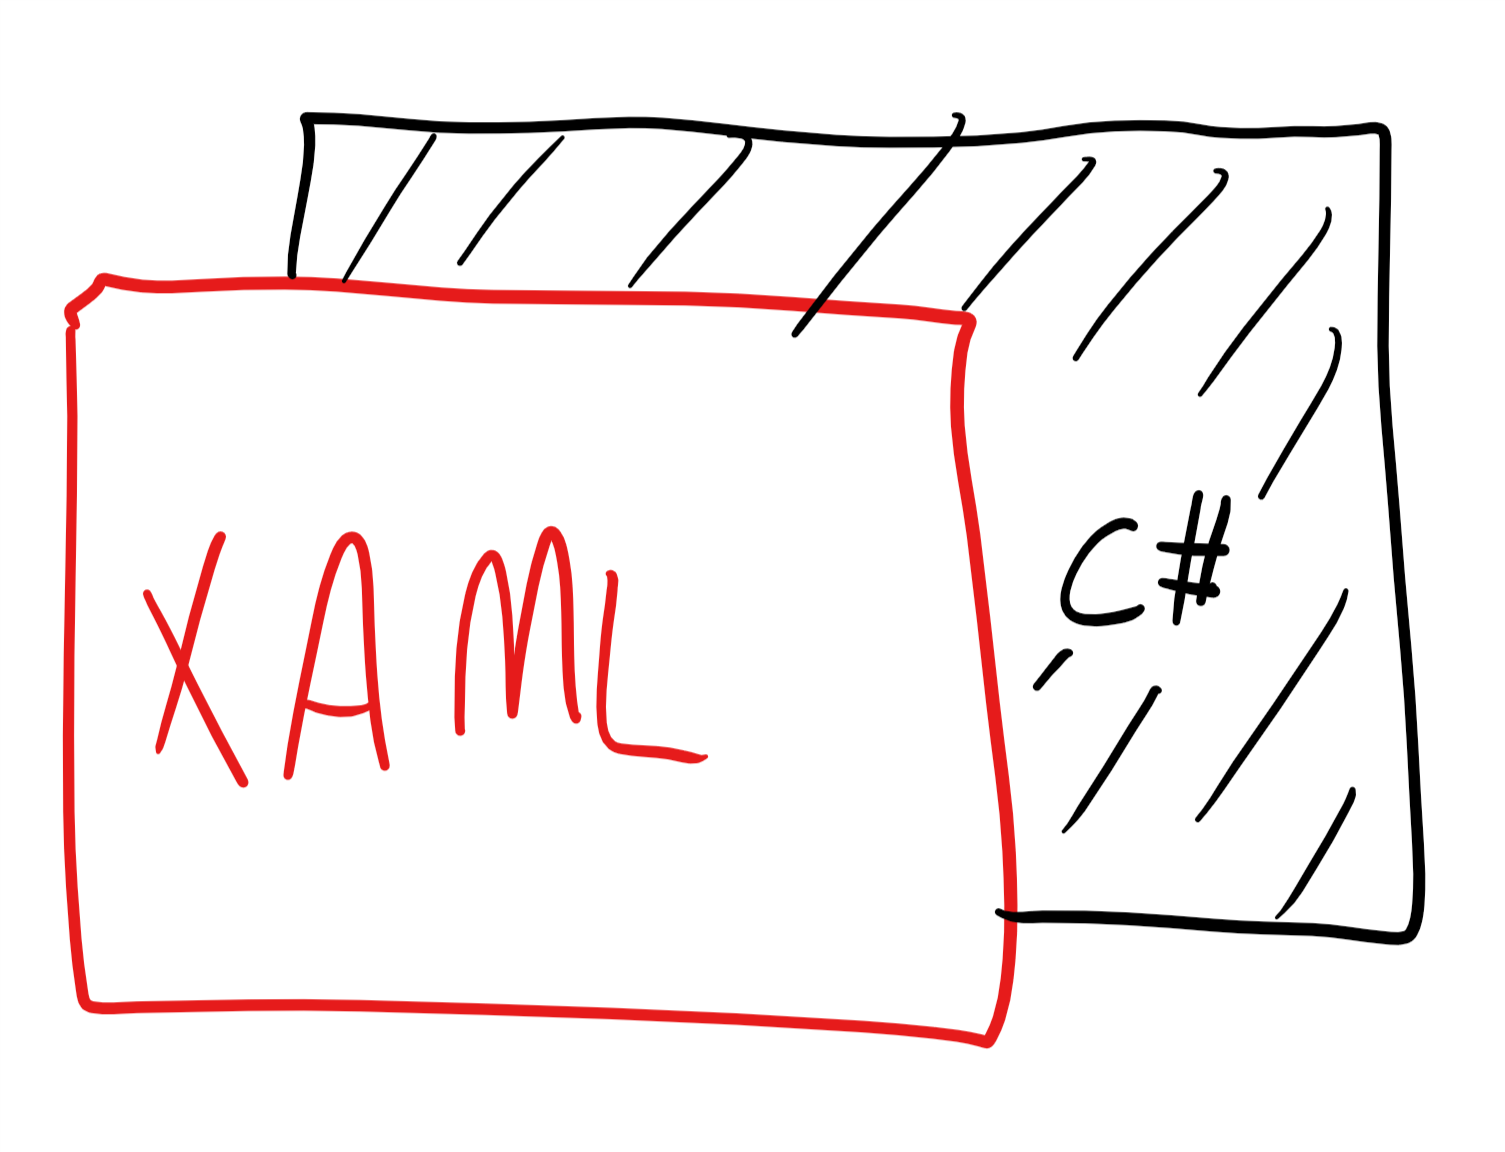 XAML
C#